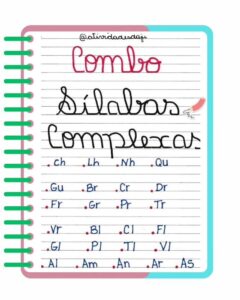 @atividadesdajo
Combo
Sílabas
Complexas
.Ch .Lh .Nh .Qu
.Gu .Br .Cr .Dr
.Fr .Gr .Pr .Tr
.Vr .Bl .Cl .Fl
.Gl .Pl .Tl .Vl
.Al .Am .An .Ar .As